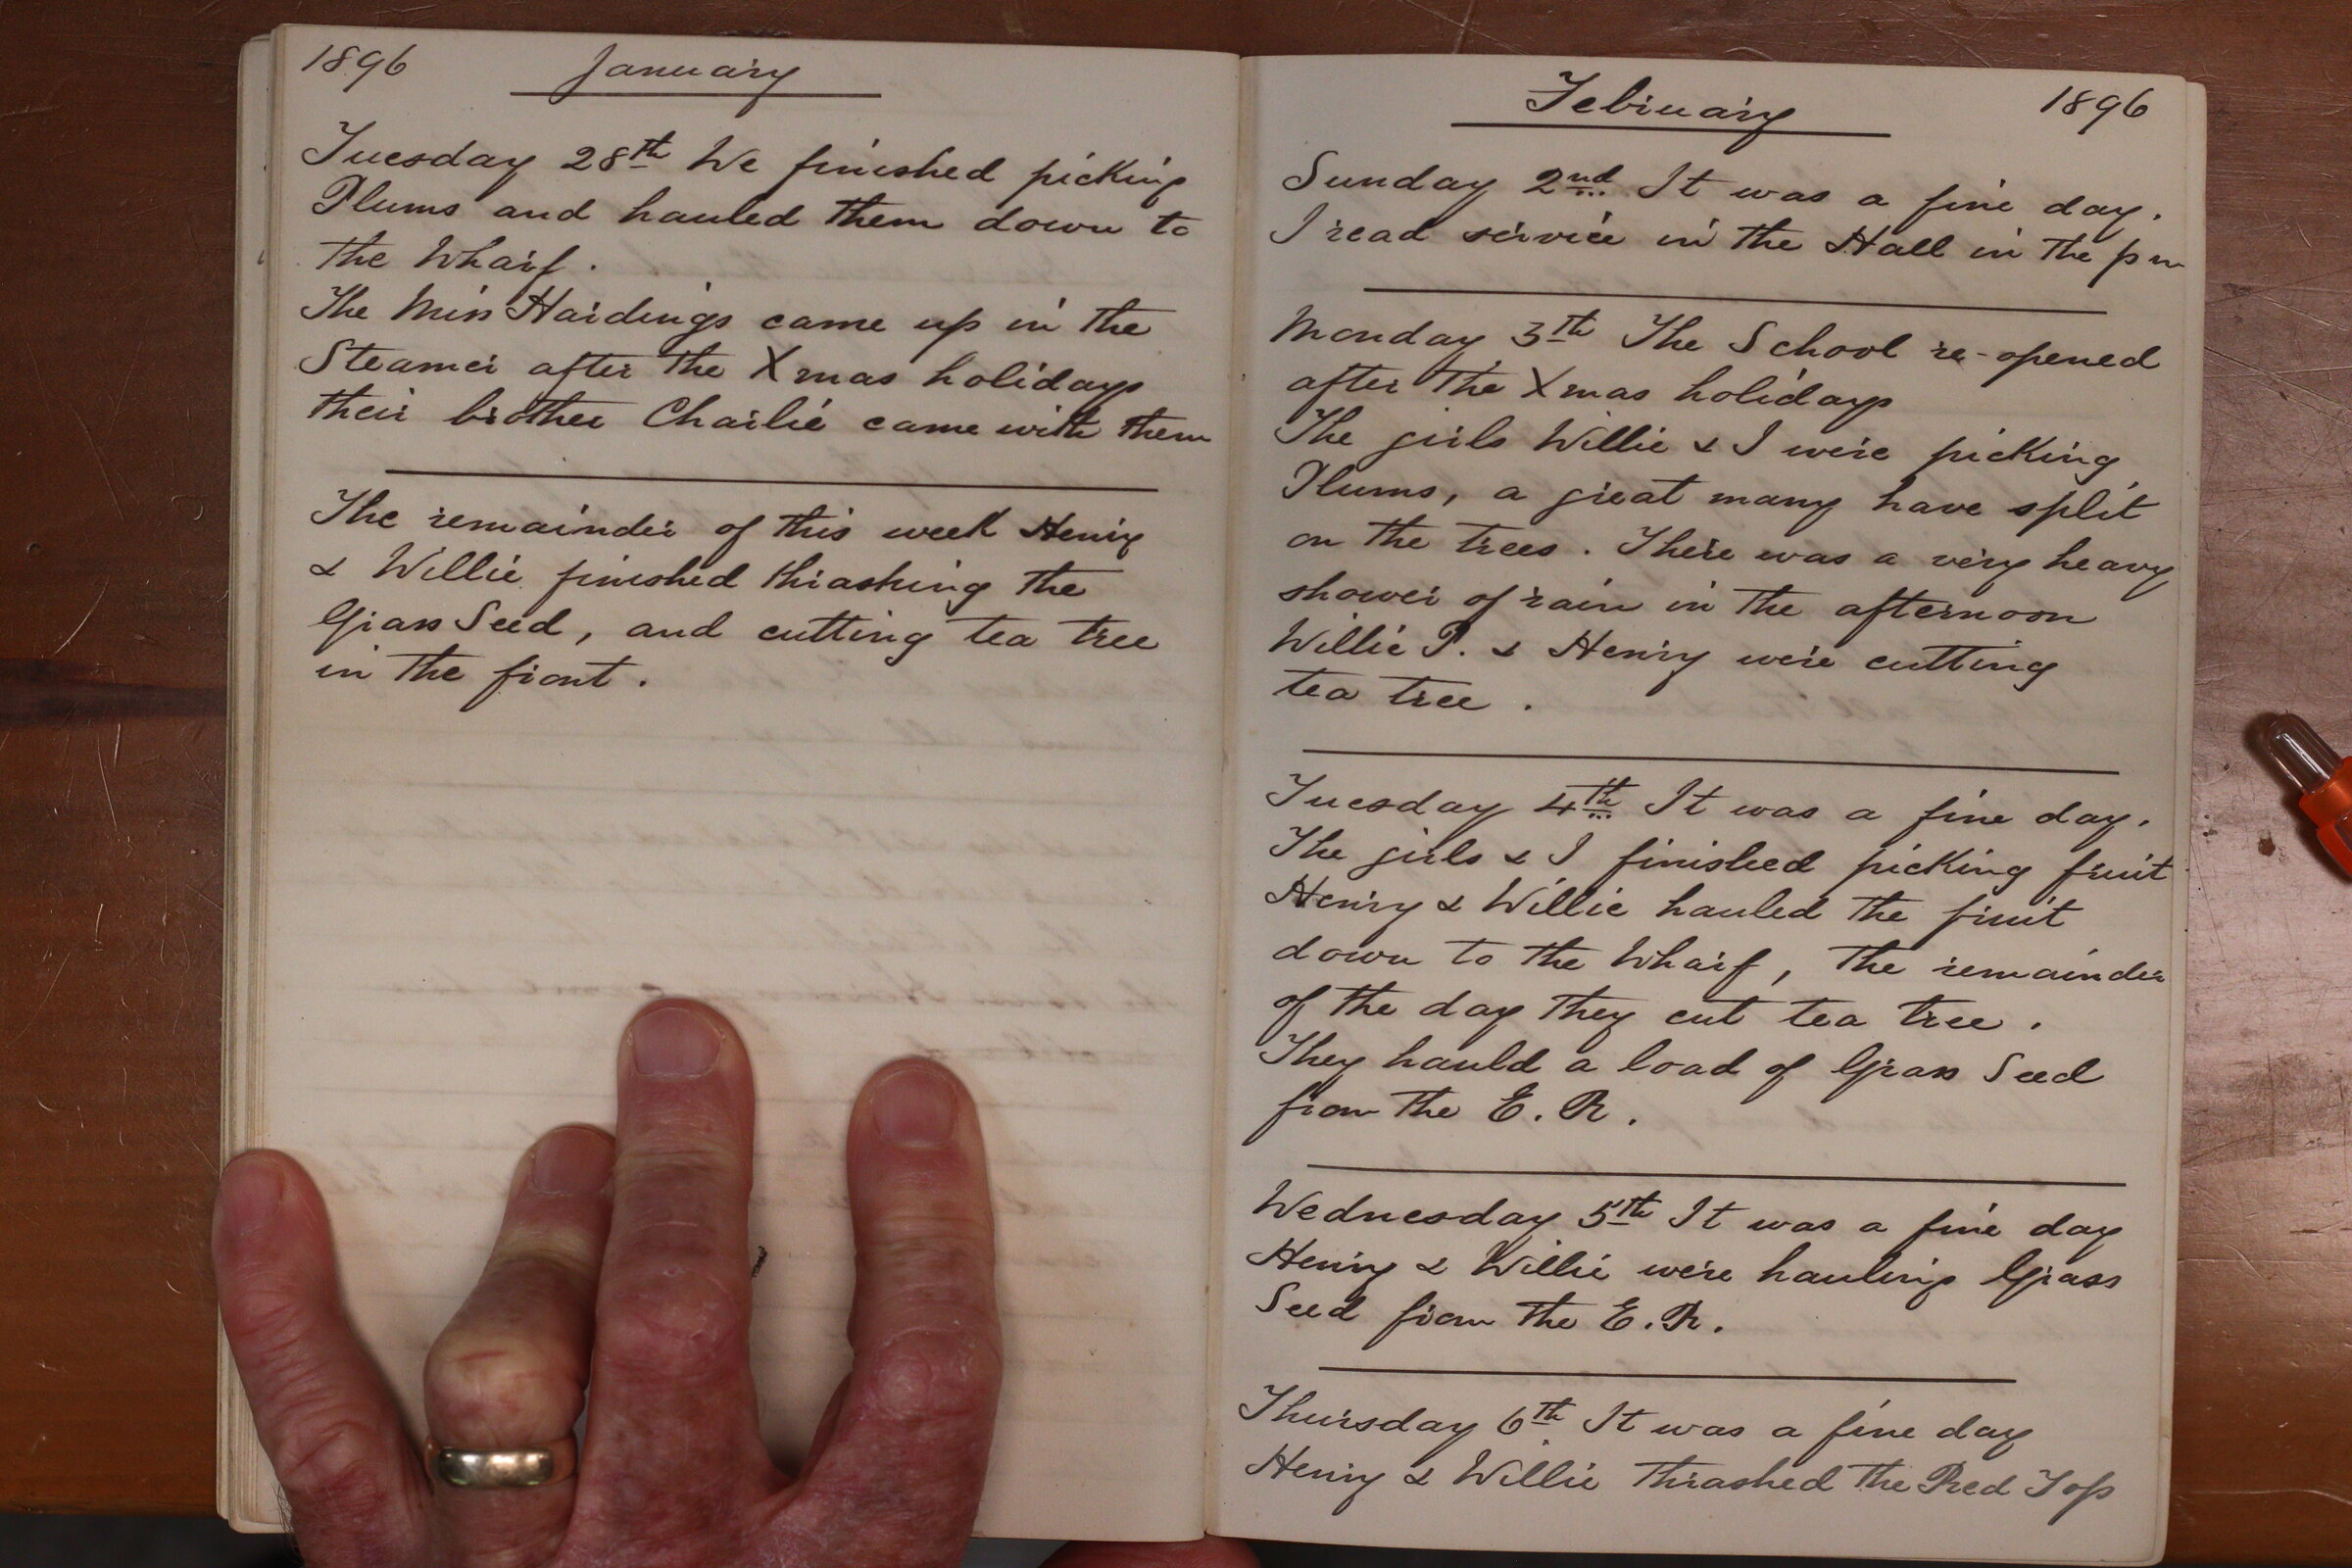 1896 January
Tuesday 28th We finished picking
Plums and hauled them down to
the Wharf.
The Miss Hardings came up in the
Steamer after the Xmas holidays
their brother Charlie came with them
The remainder of this week Henry
& Willie finished thrashing the
Grass Seed, and cutting tea tree
in the front.
February 1896
Sunday 2nd It was a fine day.
I read service in the Hall in the pm
Monday 3th The School re-opened
after the Xmas holidays
The girls Willie & I were picking
Plums, a great many have split
on the trees. There was a very heavy
shower of rain in the afternoon
Willie P. & Henry were cutting
tea tree.
Tuesday 4th It was a fine day.
The girls & I finished picking fruit
Henry & Willie hauled the fruit
down to the Wharf, the remainder
of the day they cut tea tree.
They hauld a load of Grass Seed
from the E. R.
Wednesday 5th It was a fine day
Henry & Willie were hauling Grass
Seed from the E. R.
Thursday 6th It was a fine day
Henry & Willie thrashed the Red Top